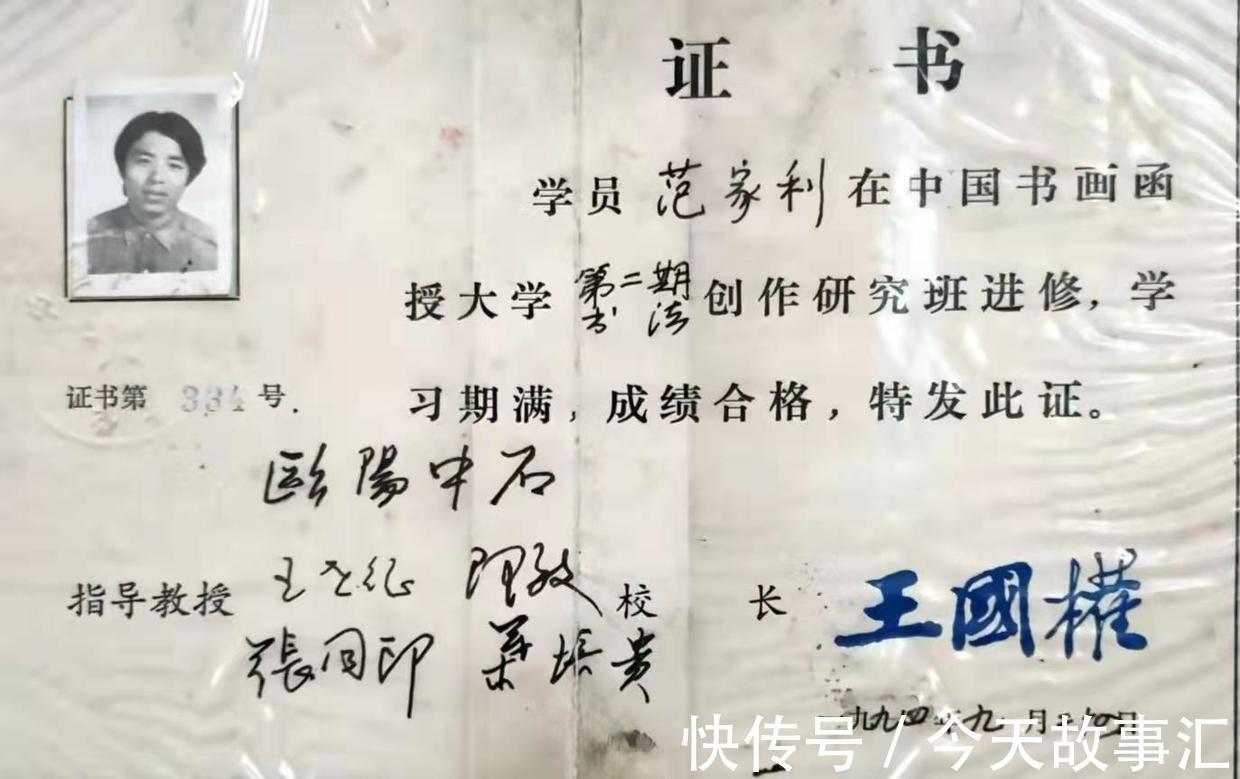 证书
学员 范家利 在中国书画函
授大学 第二期书法 创作研究班进修，学
习期满，成绩合格，特发此证。
证书第 334 号.
歐陽中石
指导教授
張同印 叶培贵
校长 王國權
一九九四年九月二十日
快传号 / 今天故事汇